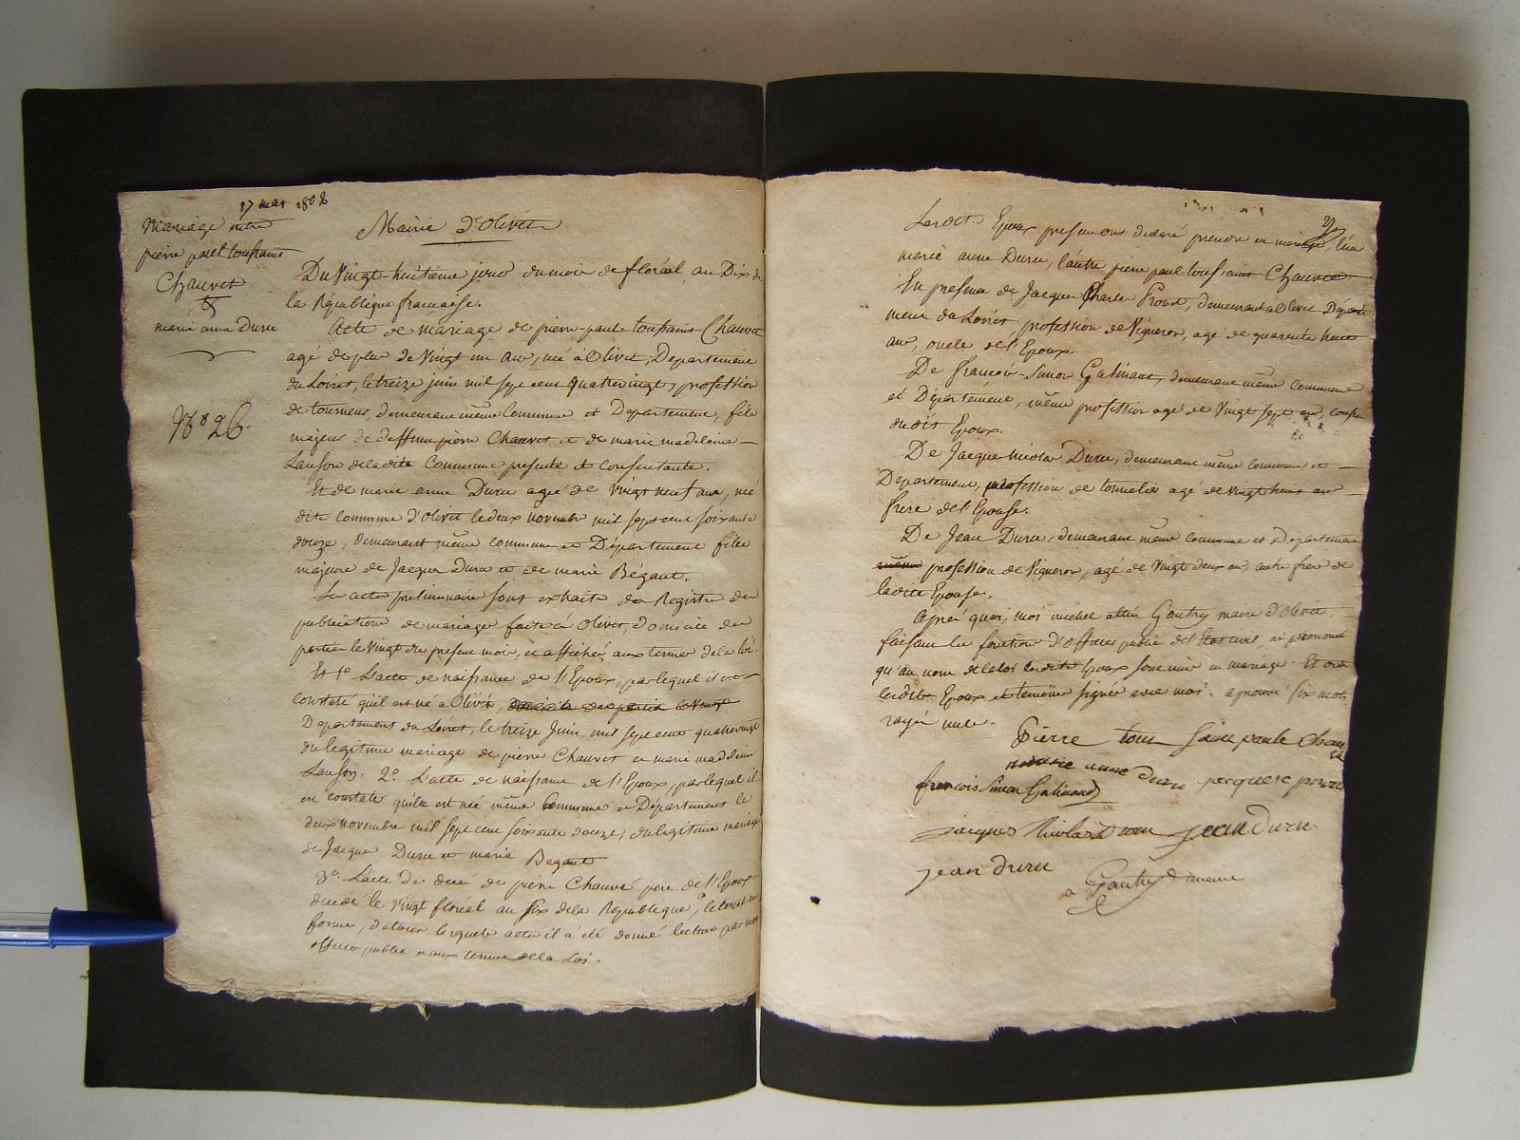 17 mai 1802
Mariage entre
pierre paul toussaint
Chauvet
&
marie anne Duru
N° 26.
Mairie d'Olivet
Du Vingt-huitième jour du mois de floréal an Dix de
la République française.
Acte de mariage de pierre-paul-toussaint Chauvet
agé de plus de Vingt un ans, né à Olivet, Département
du Loiret, le treize juin mil sept cent quatrevingt, profession
de tourneur, demeurant même Commune et Département, fils
majeur de deffunt pierre Chauvet et de marie madeleine
Lanson de ladite Commune presente et consentante.
Et de marie anne Duru agée de vingt neuf ans, née
dite commune d'Olivet le deux novembre mil sept cent soixante
douze, demeurant même commune et Département fille
majeure de Jacque Duru et de marie Bégaut.
Les actes preliminaires sont extraits des Registre des
publications de mariage faites à Olivet, domicile des
parties le vingt du present mois, et affichés aux termes de la loi.
Et 1° L'acte de naissance de l'Epoux, par lequel il est
constaté qu'il est né à Olivet,
Département du Loiret, le treize Juin mil sept cent quatrevingt
du legitime mariage de pierre Chauvet et marie madeleine
Lanson. 2° L'acte de naissance de l'Epouse, par lequel il
est constaté qu'elle est née même Commune et Département le
deux novembre mil sept cent soixante douze, du legitime mariage
de Jacque Duru et marie Begaut
3° L'acte de décé de pierre Chauvé pere de l'Epoux
décédé le vingt floréal an six de la République, le tout en
forme, de tous lesquels actes il a été donné lecture par moi
officier public aux termes de la Loi.
Lesdits Epoux presents ont déclaré prendre en mariage, l'un
marie anne Duru, l'autre pierre paul toussaint Chauvet
En presence de Jacque Charle Proust, demeurant à Olivet Départe
ment du Loiret, profession de Vigneron, agé de quarante huit
ans, oncle de l'Epoux.
De françois-Simon Galinand, demeurant même commune
et Département, même profession agé de vingt sept ans, cousin
dudit Epoux.
De Jacque nicolas Duru, demeurant même commune et
Département, profession de tonnelier agé de vingt huit ans
frere de l'Epouse.
De Jean Duru, demeurant même commune et Département
profession de Vigneron, agé de vingt deux ans autre frere de
ladite Epouse.
Après quoi, moi Gautry maire d'Olivet
faisant les fonctions d'officier public de l'état civil, ai prononcé
qu'au nom de la loi lesdits Epoux sont unis en mariage. Et ont
lesdits Epoux et temoins signés avec moi. approuvé six mots
rayés nuls.
Pierre tous Sain paule Chau
vet
marie anne duru jacque proust
francois Simon Galinand
jacques Nicolas duru jean duru
jean duru
Gautry maire